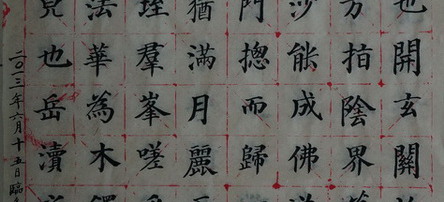 也開玄關
方指陰界
沙能成佛
門摠而歸
猶滿月麗
垤羣峯嗟
法華為木鐸
皃也岳瀆
二〇二三年六月十五日臨